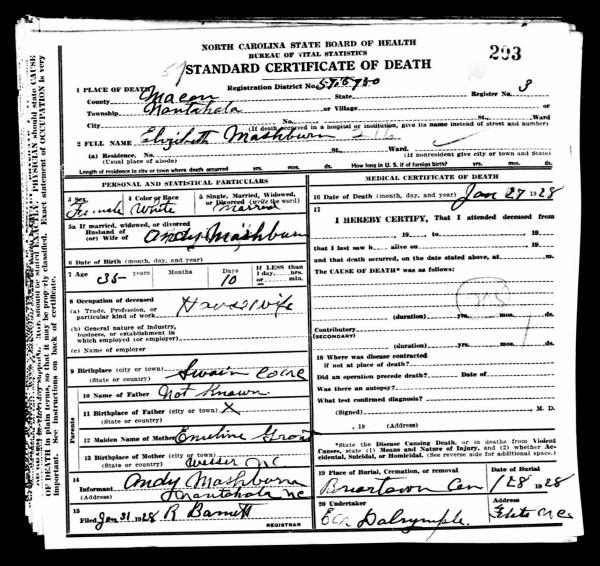 NORTH CAROLINA STATE BOARD OF HEALTH
BUREAU OF VITAL STATISTICS
STANDARD CERTIFICATE OF DEATH
293
1 PLACE OF DEATH
Registration District No.
Register No. 3
County Macon State
Township Nantahala or Village or
City No. St., Ward
(If death occurred in a hospital or institution, give its name instead of street and number)
2 FULL NAME Elizibeth Mashburn
(a) Residence. No. St., Ward.
(Usual place of abode) (If nonresident give city or town and State)
Length of residence in city or town where death occurred yrs. mos. ds. How long in U. S. if of foreign birth? yrs. mos. ds.
PERSONAL AND STATISTICAL PARTICULARS
3 Sex 4 Color or Race 5 Single, Married, Widowed, or Divorced (write the word)
Female White Married
5a If married, widowed, or divorced
Husband of
(or) Wife of Andy Mashburn
6 Date of Birth (month, day, and year)
7 Age 35 years Months Days 10 If LESS than 1 day, hrs. or min.
8 Occupation of deceased
(a) Trade, Profession, or particular kind of work Housewife
(b) General nature of industry, business, or establishment in which employed (or employer)
(c) Name of employer
9 Birthplace (city or town) Swain
(State or country)
Parents
10 Name of Father Not Known
11 Birthplace of Father (city or town) X
(State or country)
12 Maiden Name of Mother Emeline
13 Birthplace of Mother (city or town)
(State or country) Wesser NC
14 Informant Andy Mashburn
(Address) Nantahala NC
15 Filed Jan 31 1928 R Barnett
REGISTRAR
MEDICAL CERTIFICATE OF DEATH
16 Date of Death (month, day, and year) Jan 27 1928
17
I HEREBY CERTIFY, That I attended deceased from
, 19 to , 19
that I last saw h alive on , 19
and that death occurred, on the date stated above, at m.
The CAUSE OF DEATH* was as follows:
(duration) yrs. mos. ds.
Contributory
(SECONDARY)
(duration) yrs. mos. ds.
18 Where was disease contracted
if not at place of death?
Did an operation precede death? Date of
Was there an autopsy?
What test confirmed diagnosis?
(Signed) M. D.
, 19 (Address)
*State the Disease Causing Death, or in deaths from Violent Causes, state (1) Means and Nature of Injury, and (2) whether Accidental, Suicidal, or Homicidal. (See reverse side for additional space.)
19 Place of Burial, Cremation, or removal Date of Burial
Briartown Cem 1 28 1928
20 Undertaker Address
Dalrymple